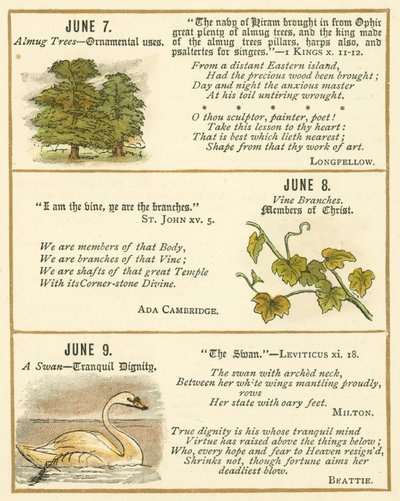 JUNE 7.
Almug Trees—Ornamental uses.
"The navy of Hiram brought in from Ophir
great plenty of almug trees, and the king made
of the almug trees pillars, harps also, and
psalteries for singers."—1 KINGS x. 11-12.
From a distant Eastern island,
Had the precious wood been brought;
Day and night the anxious master
At his toil untiring wrought.
* * * * *
O thou sculptor, painter, poet!
Take this lesson to thy heart:
That is best which lieth nearest;
Shape from that thy work of art.
LONGFELLOW.
JUNE 8.
Vine Branches.
Members of Christ.
"I am the vine, ye are the branches."
ST. JOHN xv. 5.
We are members of that Body,
We are branches of that Vine;
We are shafts of that great Temple
With its Corner-stone Divine.
ADA CAMBRIDGE.
JUNE 9.
A Swan—Tranquil Dignity.
"The Swan."—LEVITICUS xi. 18.
The swan with archèd neck,
Between her white wings mantling proudly,
rows
Her state with oary feet.
MILTON.
True dignity is his whose tranquil mind
Virtue has raised above the things below;
Who, every hope and fear to Heaven resign'd,
Shrinks not, though fortune aims her
deadliest blow.
BEATTIE.